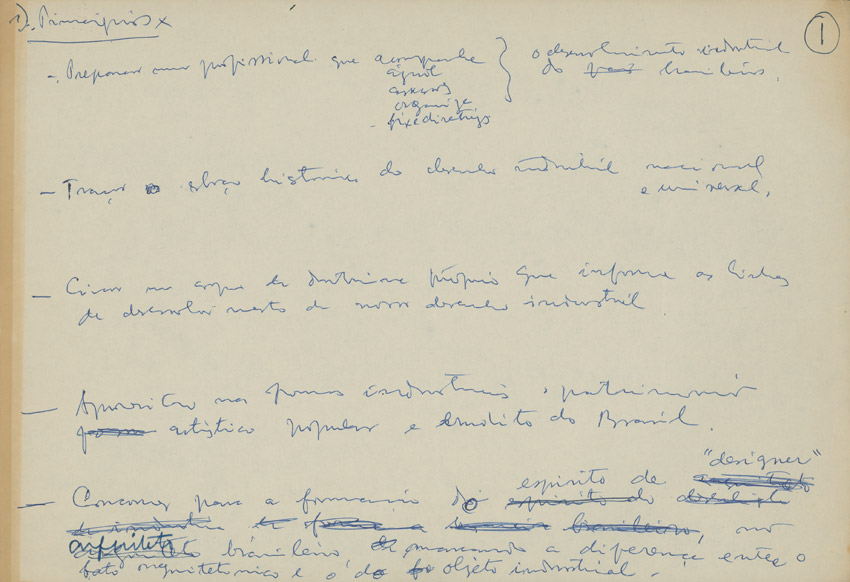 1). Principios x
1
-. Preparar um profissional que acompanhe
ajude
assessore
organize
- fixe diretrizes
o desenvolvimento industrial
do país brasileiro.
- Traçar o esboço histórico do desenho industrial nacional
e universal.
- Criar um corpo de doutrina próprio que informe as linhas
de desenvolvimento de nosso desenho industrial
- Aproveitar nas formas industriais o patrimonio
artístico popular e erudito do Brasil.
"designer"
espirito de
- Concorrer para a formação do espirito do
brasileiro, no
arquiteto brasileiro marcando a diferença entre o
fato arquitetonico e o do objeto industrial.